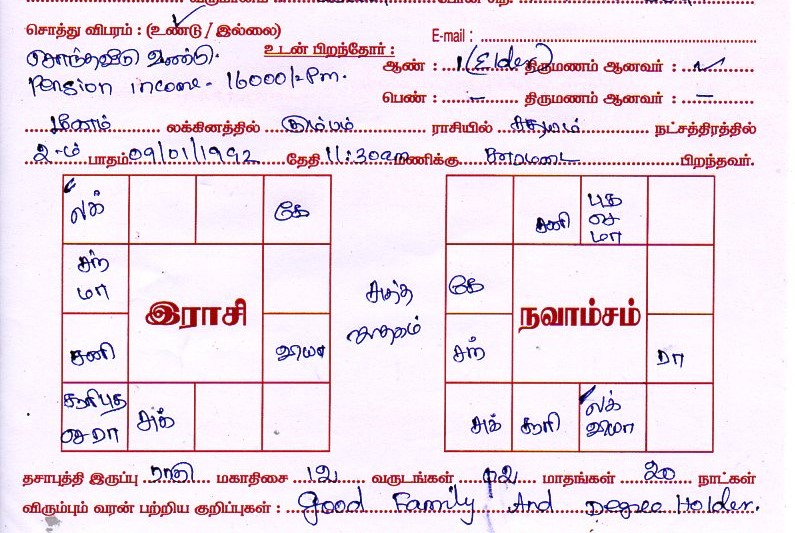 சொத்து விபரம் : (உண்டு / இல்லை)
E-mail :
சொந்தவீடு உண்டு.
உடன் பிறந்தோர் :
ஆண் : 1 (Elder) திருமணம் ஆனவர் :
Pension income - 16000/- Pm.
பெண் : – திருமணம் ஆனவர் : –
மீனம் லக்கினத்தில் கும்பம் ராசியில் சதயம் நட்சத்திரத்தில்
2-ம் பாதம் 09/01/1992 தேதி 11:30am மணிக்கு காரமடை பிறந்தவர்.
லக் கே
சனி புத செ மா
சந் மா
இராசி
சுத்த ஜாதகம்
கே
நவாம்சம்
சனி
சந் ரா
சூரி புத செ ரா
சுக்
சுக் சூரி லக்
தசாபுத்தி இருப்பு ராகு மகாதிசை 12 வருடங்கள் 02 மாதங்கள் 20 நாட்கள்
விரும்பும் வரன் பற்றிய குறிப்புகள் : Good Family And Degree Holder.